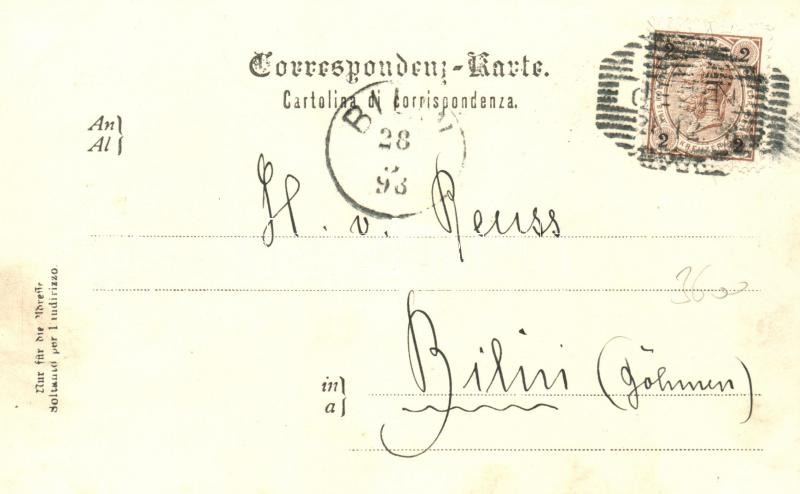 Correspondenz-Karte.
Cartolina di corrispondenza.
2 2
2 2
28
98
An
Al
H. v. Reuss
3600
Nur für die Adresse
Soltanto per l'indirizzo.
in
a
Bilin (Göhmen)